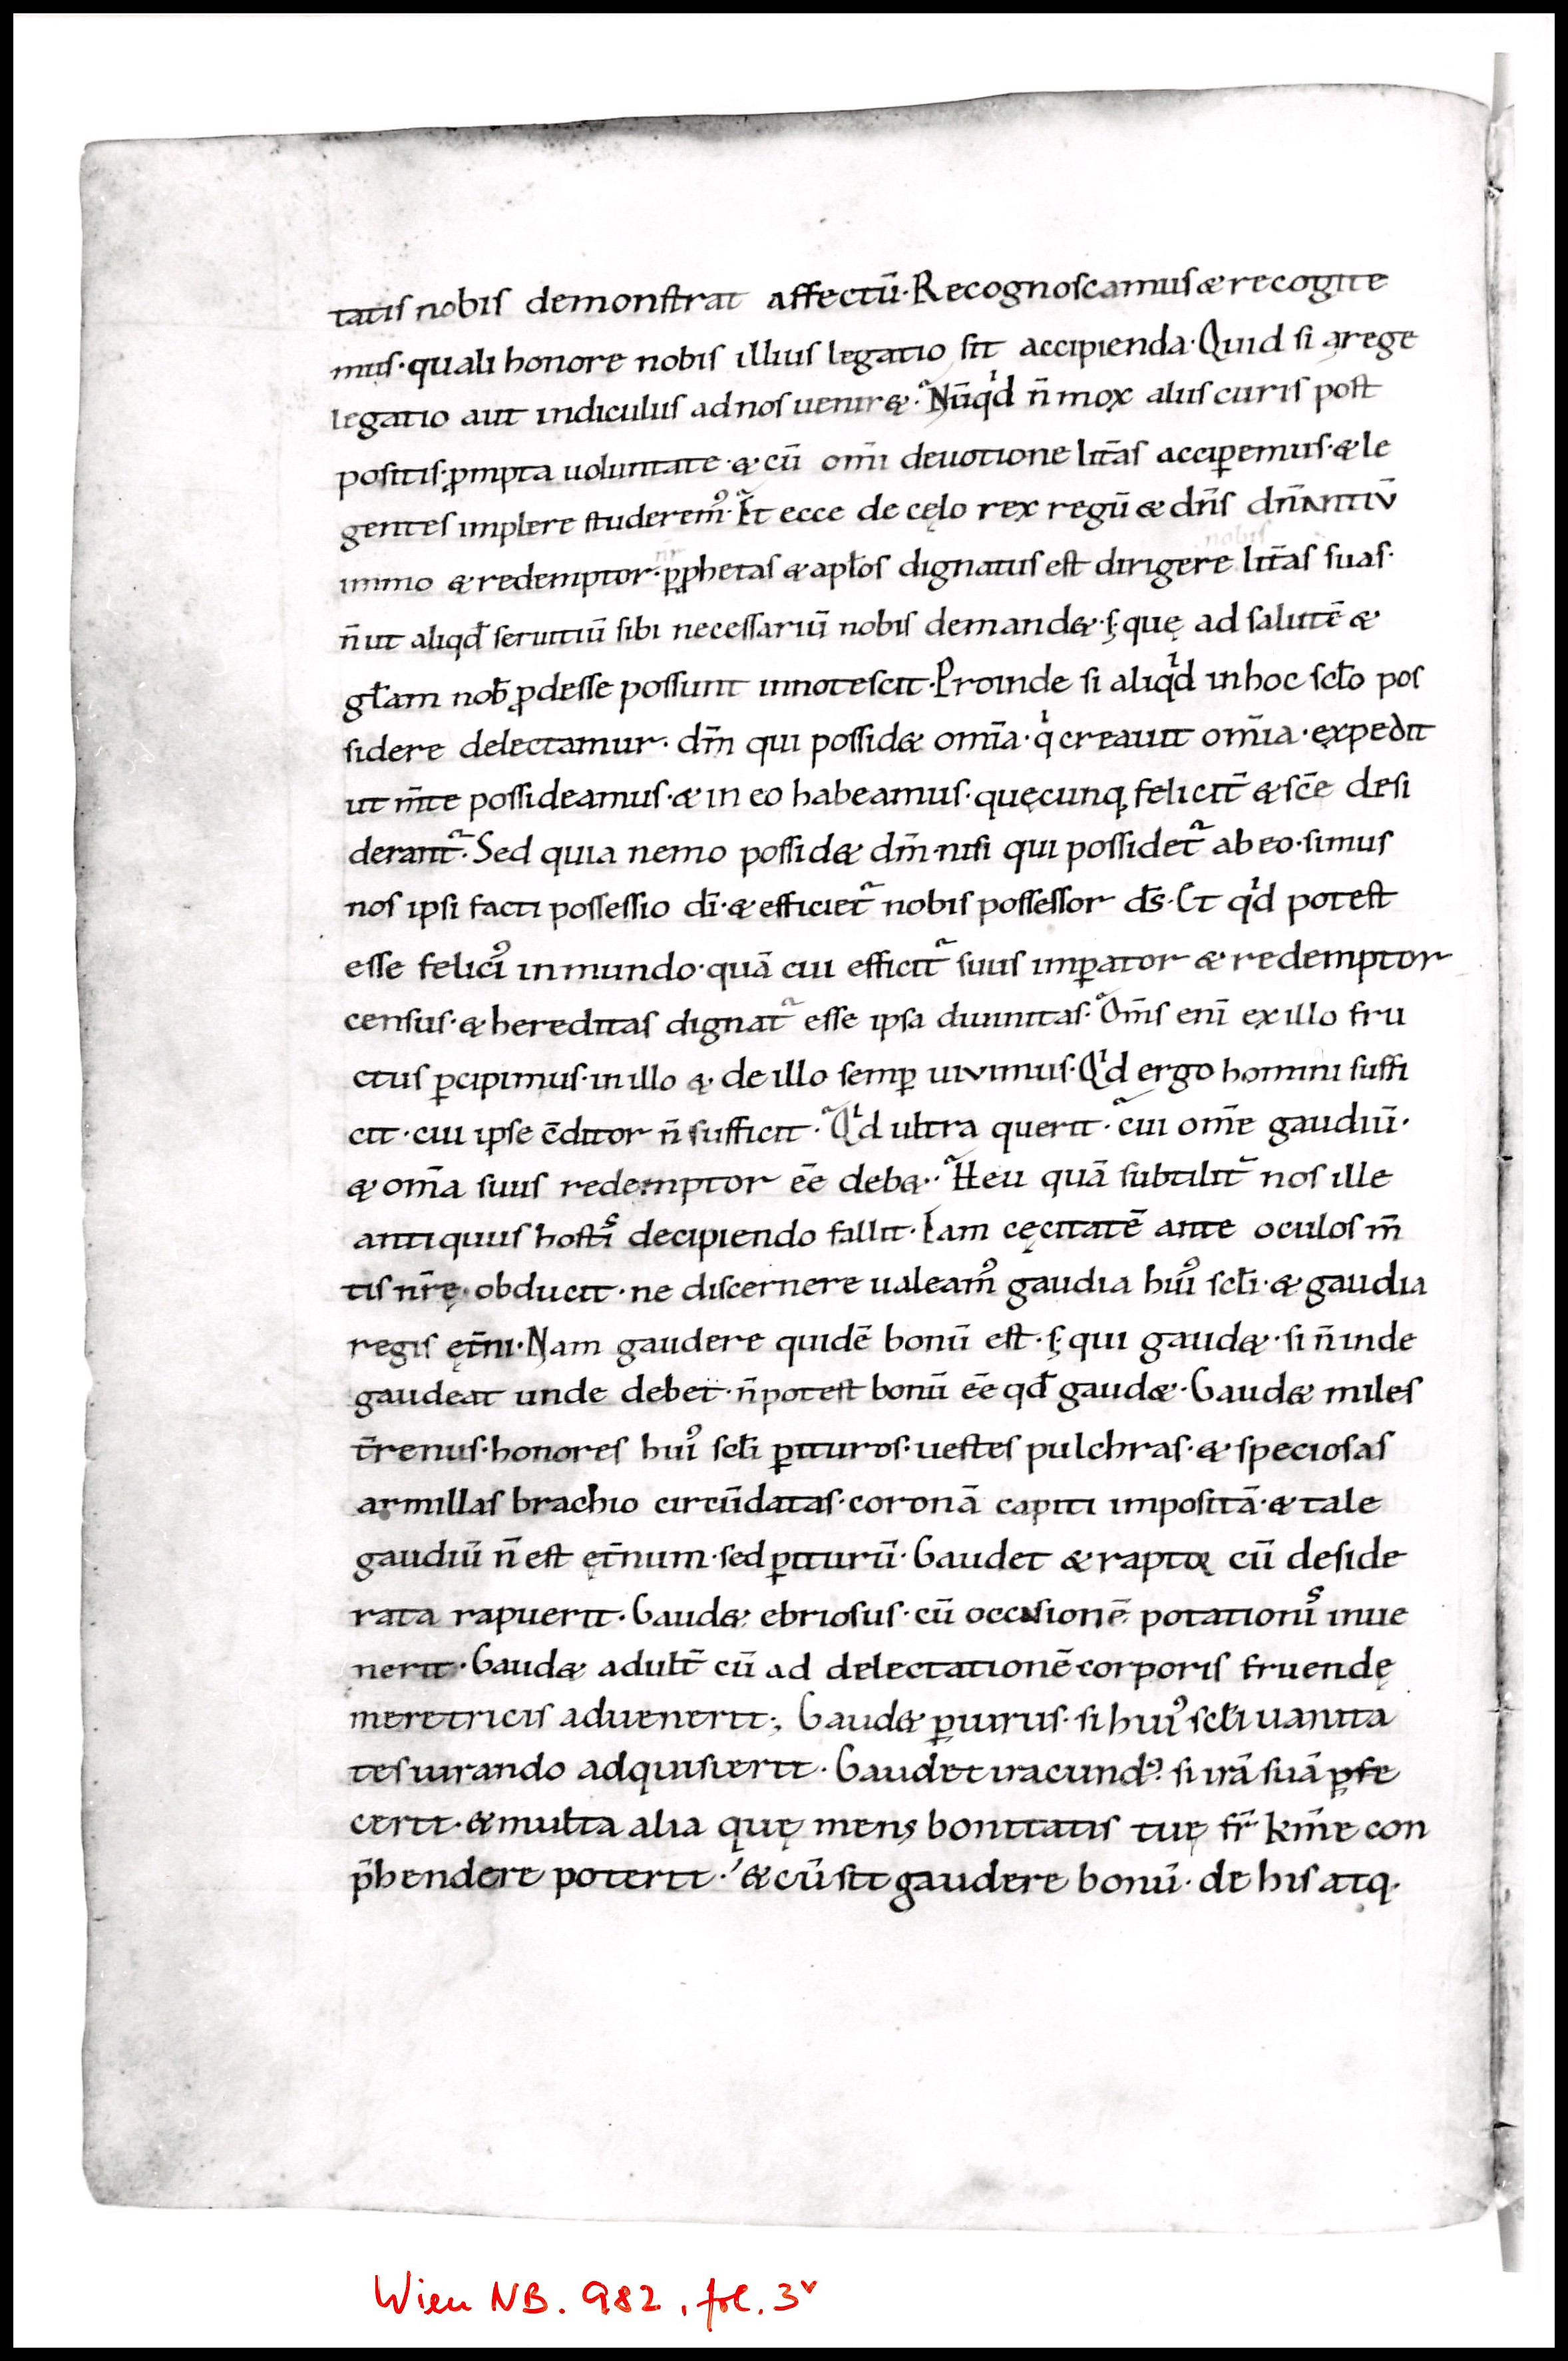 tatis nobis demonstrat affectū· Recognoscamus & recogite
mus· quali honore nobis illius legatio sit accipienda· Quid si a rege
legatio aut indiculus ad nos uenir&· Nūqͥd n̄ mox aliis curis post
positis· ꝓmpta uoluntate· & cū om̄i deuotione lit̄as acciꝑemus· & le
gentes implere studerem᾽· Et ecce de cęlo rex regū & dn̄s dn̄antiū
nr̄ nobis
immo & redemptor· ꝑ ꝓphetas & apl̄os dignatus est dirigere lit̄as suas·
n̄ ut aliqd̄ seruitiū sibi necessariū nobis demand&· s; quę ad salutē &
gl̄am nob̄ ꝓdesse possunt innotescit· Proinde si aliqͥd in hoc scl̄o pos
sidere delectamur· dm̄ qui possid& om̄ia· qͥ creauit om̄ia· expedit
ut m̄te possideamus· & in eo habeamus· quęcunq; felicit̄ & sc̄e desi
derant᷑· Sed quia nemo possid& dm̄· nisi qui possidet᷑ ab eo· simus
nos ipsi facti possessio dī· & efficiet᷑ nobis possessor ds̄· Et qͥd potest
esse felici᾽ in mundo· quā cui efficit᷑ suus imꝑator & redemptor
census· & hereditas dignat᷑ esse ipsa diuinitas· Om̄s enī ex illo fru
ctus ꝑcipimus· in illo &· de illo semꝑ uiuimus· Qͥd ergo homini suffi
cit· cui ipse c̄ditor n̄ sufficit· Qͥd ultra querit· cui om̄e gaudiū·
& om̄a suus redemptor ēe deb&· Heu quā subtilit̄ nos ille
antiquus hostis decipiendo fallit· Iam cęcitatē ante oculos m̄
tis nr̄ę· obducit· ne discernere ualeam᾽ gaudia hui᾽ scl̄i· & gaudia
regis ęt̄ni· Nam gaudere quidē bonū est· s; qui gaud&· si n̄ inde
gaudeat unde debet· n̄ potest bonū ēe qd̄ gaud&· Gaud& miles
t̄renus· honores hui᾽ scl̄i ꝑituros· uestes pulchras· & speciosas
armillas brachio circūdatas· coronā capiti impositā· & tale
gaudiū n̄ est ęt̄num· sed ꝑiturū· Gaudet & raptoꝛ cū deside
rata rapuerit· Gaud& ebriosus· cū occasionē potationis inue
nerit· Gaud& adult̄ cū ad delectationē corporis fruendę
meretricis aduenerit·, Gaud& ꝑiurus· si hui᾽ scl̄i uanita
tes iurando adquisierit· Gaudet iracund᾽· si irā suā ꝑfe
cerit· & multa alia quę mens bonitatis tuę fr̄ km̄e con
p̄hendere poterit· & cū sit gaudere bonū· de his atq·
Wien NB. 982, fol. 3ᵛ